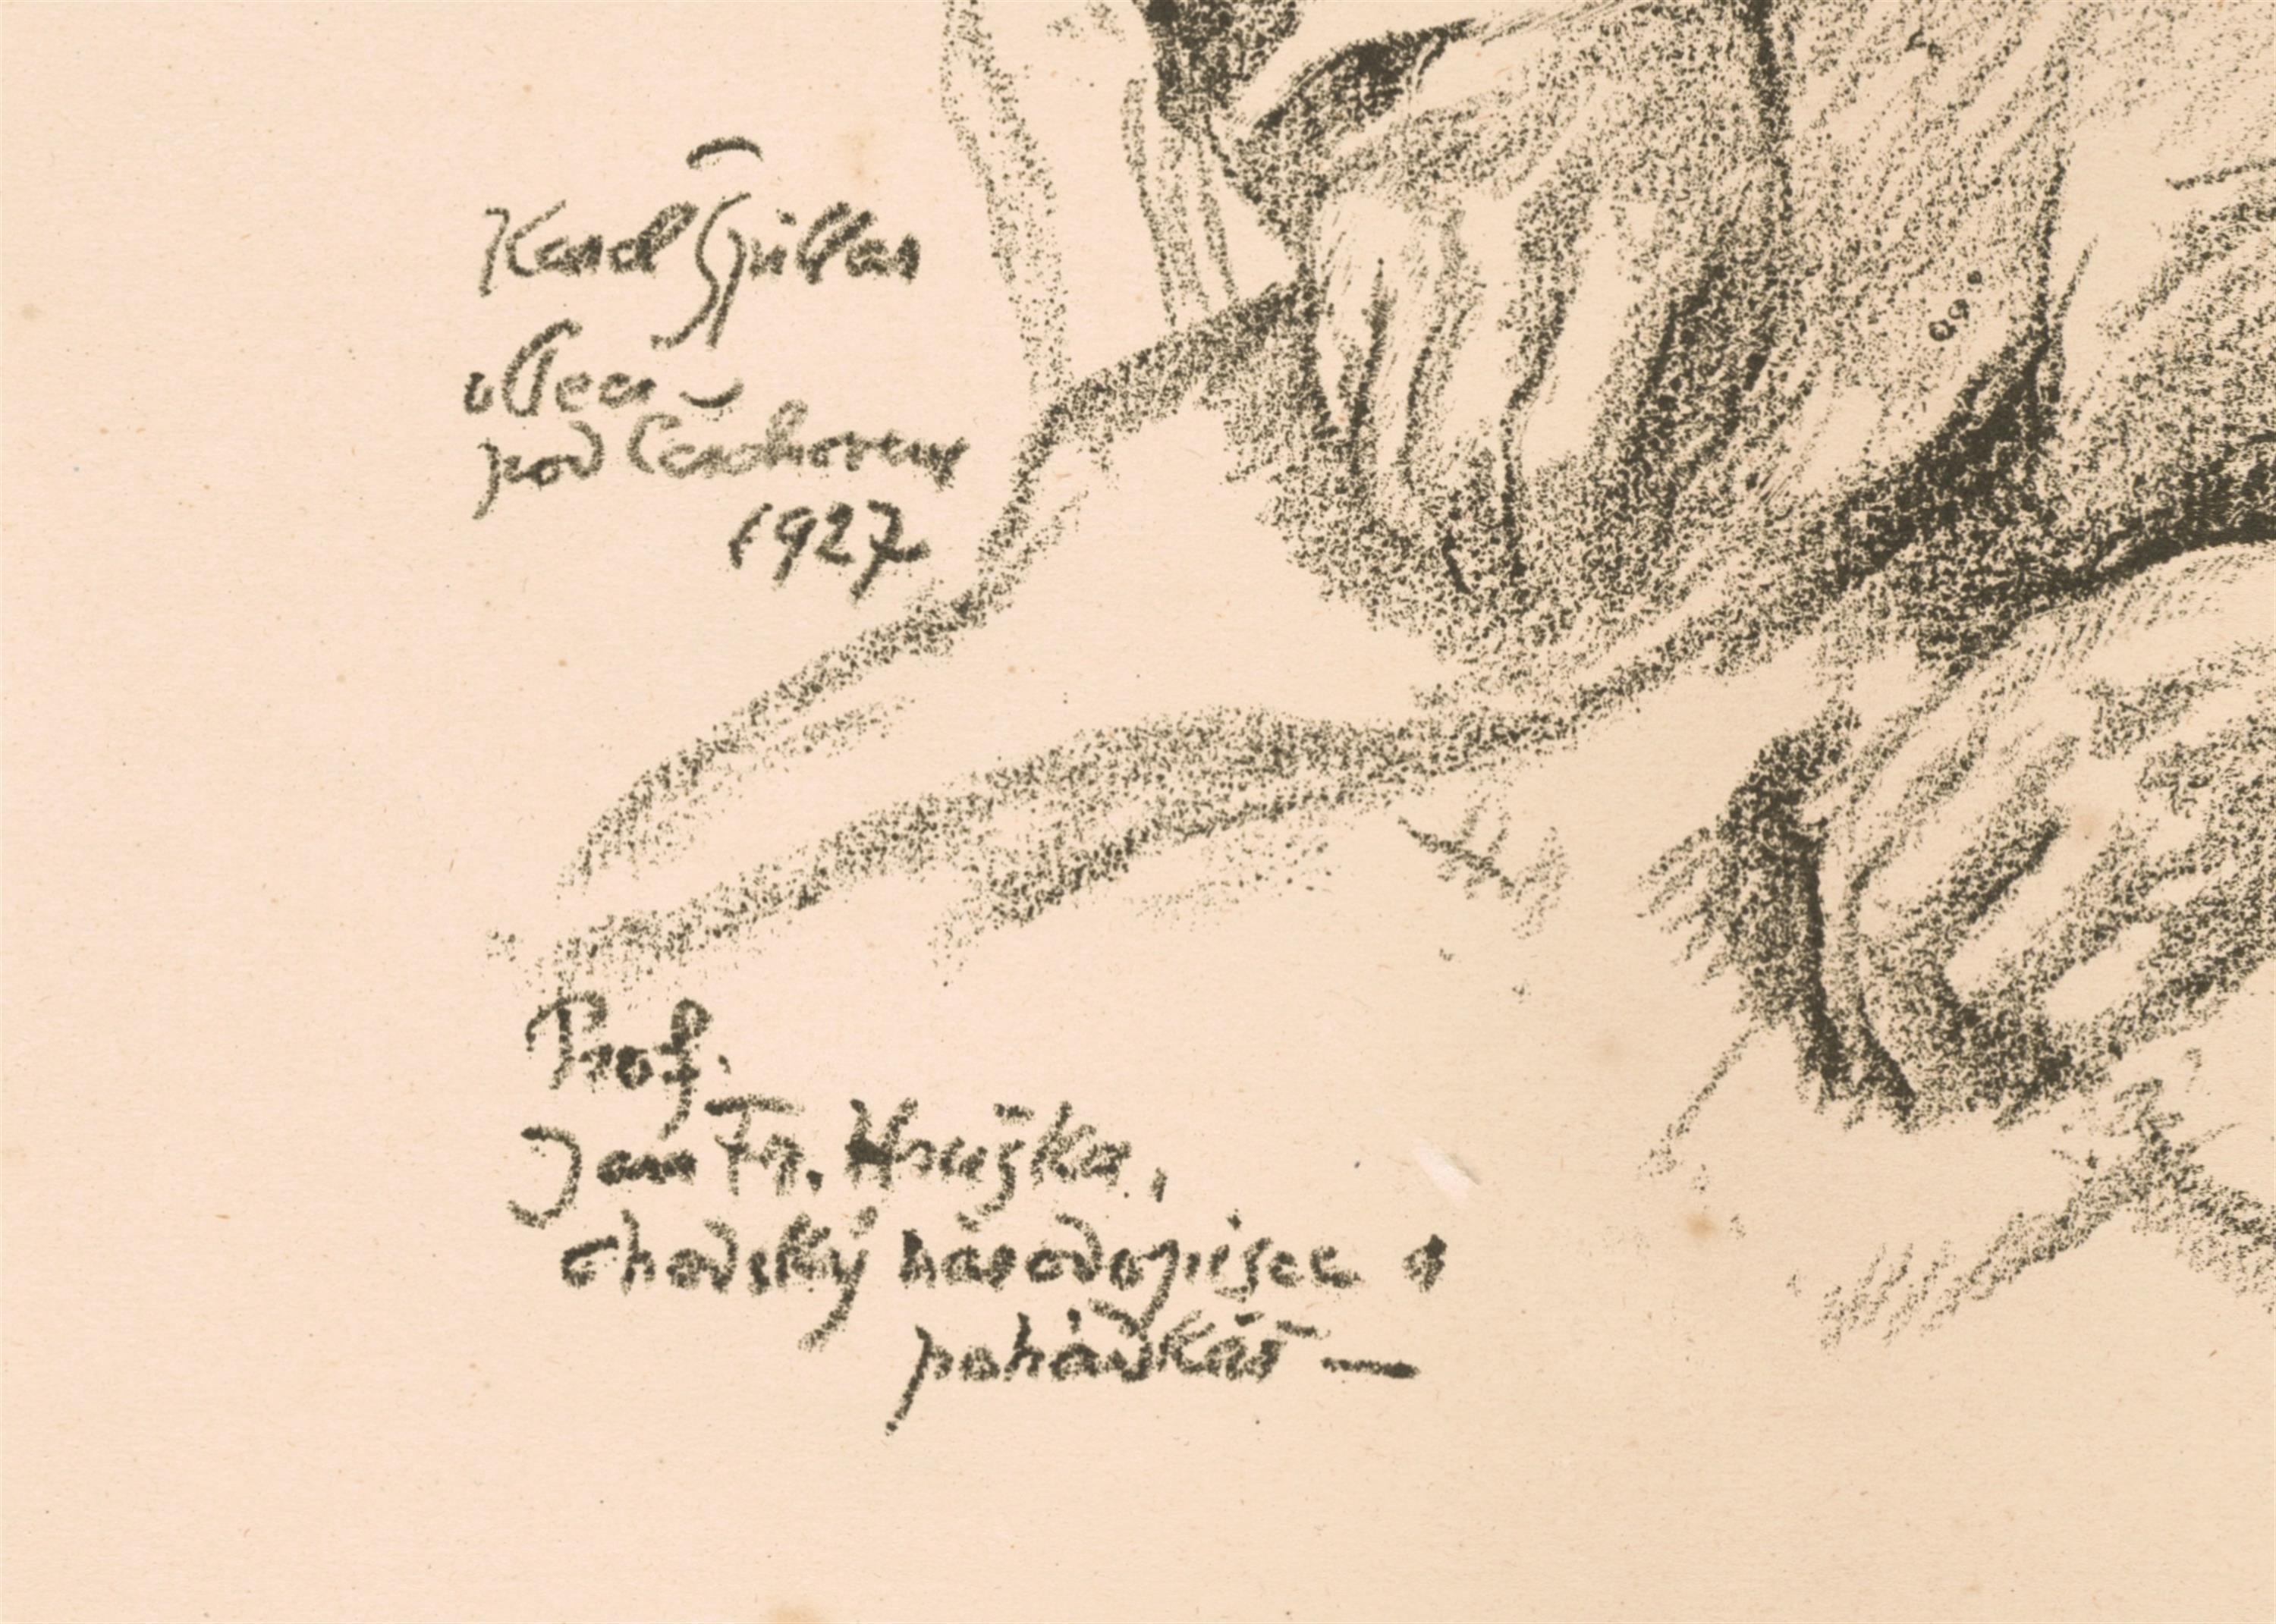 Karel Špillar
v Peci
pod Čerchovem
1927
Prof.
Jan Fr. Hruška,
chodský národopisec a
pohádkář —